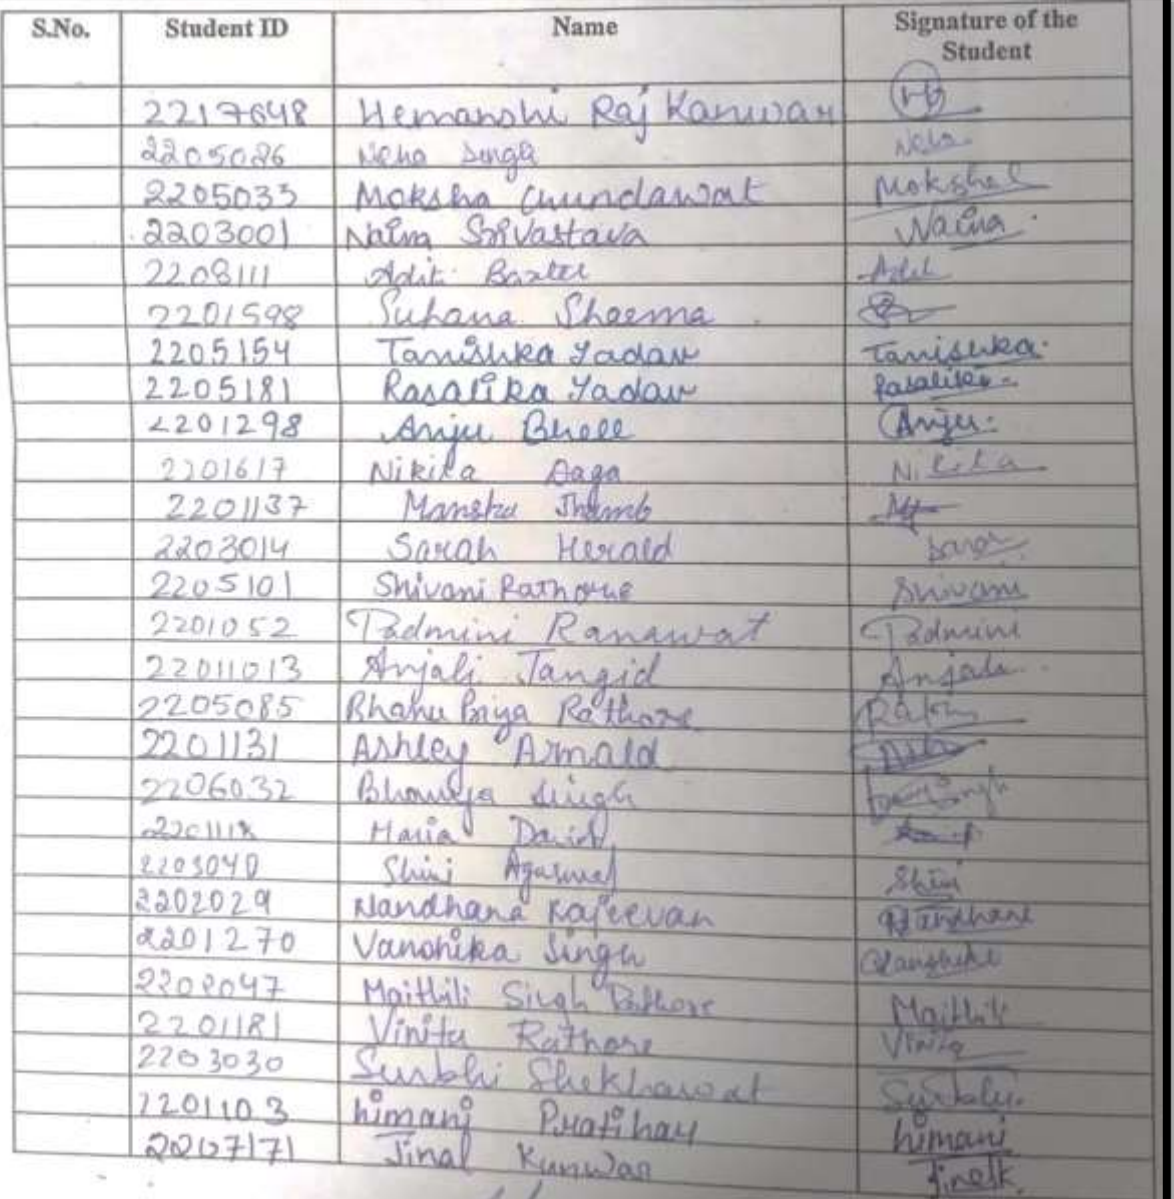 S.No. Student ID Name Signature of the Student
2217648 Hemanshi Raj Kanwar HG
2205026 Neha Singh Neha
2205033 Moksha Chundawat Moksha
2203001 Naina Srivastava Naina
2208111 Aditi Baxter Aditi
2201598 Suhana Sharma
2205154 Tanishka Yadav Tanishka
2205181 Rasalika Yadav Rasalika
2201298 Anju Bhell Anju
2201617 Nikita Daga Nikita
2201137 Mansha Thamb
2203014 Sarah Herald Sarah
2205101 Shivani Rathore Shivani
2201052 Padmini Ranawat Padmini
22011013 Anjali Jangid Anjali
2205085 Bhanu Priya Rathore
2201131 Ashley Arnald
2206032 Bhavya Singh
Maria David
2203040 Shini Agarwal Shini
2202029 Nandhana Rajeevan Nandhana
2201270 Vanshika Singh Vanshika
2202047 Maithili Singh Rathore Maithili
2201181 Vinita Rathore Vinita
2203030 Surbhi Shekhawat Surbhi
2201103 himani Pratihar himani
2207171 Jinal Kunwar JinalK